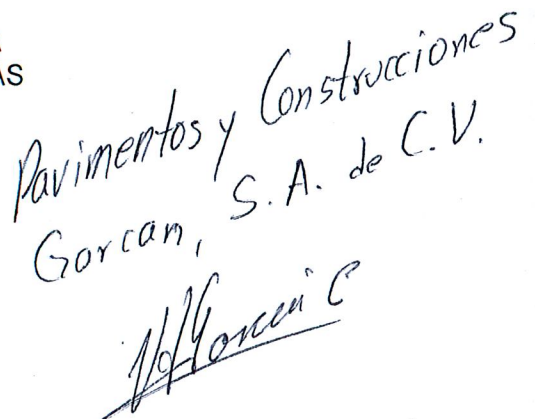 AS
Pavimentos y Construcciones
Gorcan, S.A. de C.V.